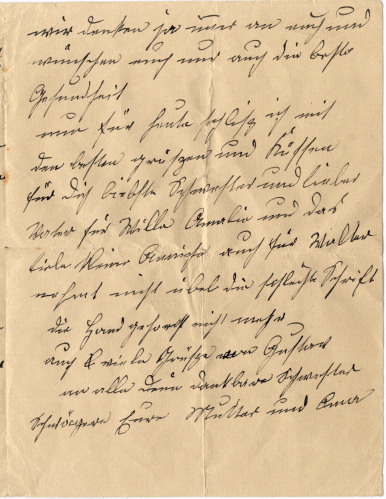 wir denken ja imer an euch und
wünschen euch nur auch die beste
Gesundheit
nun für heute schlisz ich mit
den besten grüszen und Küssen
für dich liebste Schwester und lieber
Vater für Willa Amalie und das
liebe kleine auch für Walter
nehmt nicht übel die schlechte Schrift
die Hand gehorcht nicht mehr
auch viele Grüsze von Gustav
an alle dankbare Schwester
Schwägerin Eure Mutter und Oma